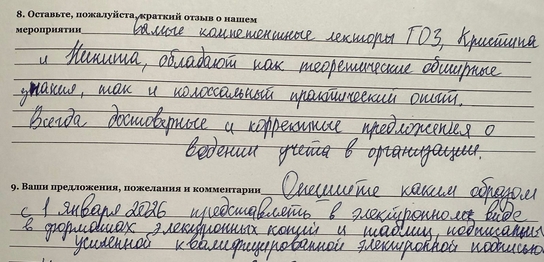 8. Оставьте, пожалуйста, краткий отзыв о нашем
мероприятии Самые компетентные лекторы ГОЗ, Кристина
и Никита, обладают как теоретические обширные
знания, так и колоссальный практический опыт.
Всегда достоверные и корректные предложения о
ведении учета в организации.
9. Ваши предложения, пожелания и комментарии Опишите каким образом
с 1 января 2026 представлять в электронном виде
в форматах электронных копий и таблиц, подписанных
усиленной квалифицированной электронной подписью